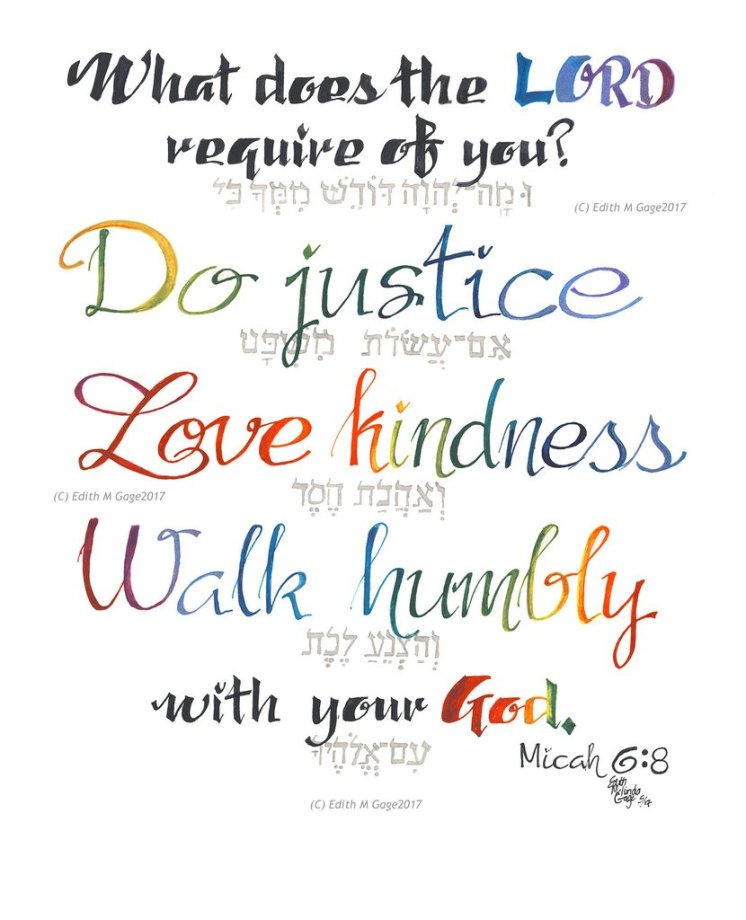 What does the LORD
require of you?
וּמָה־יְהוָה דּוֹרֵשׁ מִמְּךָ כִּי
(C) Edith M Gage2017
Do justice
אִם־עֲשׂוֹת מִשְׁפָּט
Love kindness
(C) Edith M Gage2017
וְאַהֲבַת חֶסֶד
Walk humbly
וְהַצְנֵעַ לֶכֶת
with your God.
עִם־אֱלֹהֶיךָ
Micah 6:8
Edith
Melinda
Gage 5/17
(C) Edith M Gage2017